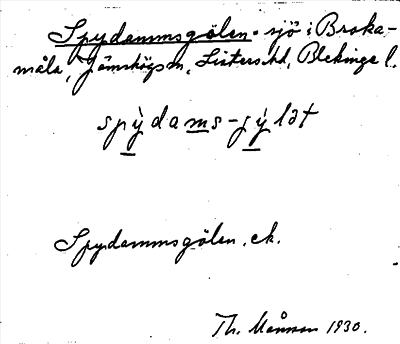 Spydammsgölen. sjö i Broka-
måla, Jämshögs sn, Listers hd, Blekinge l.
spỳdams-jỳlət
Spydammsgölen. ek.
Th. Månsson 1930.